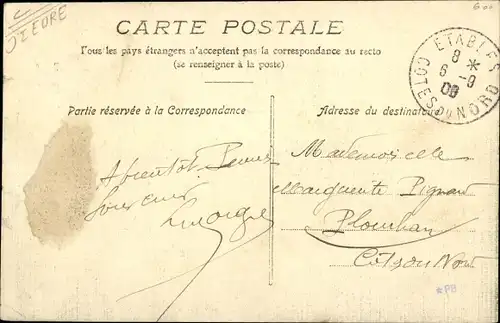 EURE
CARTE POSTALE
Tous les pays étrangers n'acceptent pas la correspondance au recto
(se renseigner à la poste)
Partie réservée à la Correspondance
Adresse du destinataire
ETABLES
8
6 - 9
09
COTES DU NORD
Abientôt
Souvenir
Mademoiselle
Marguerite Pignard
Plourhan
Côtes du Nord
*PB